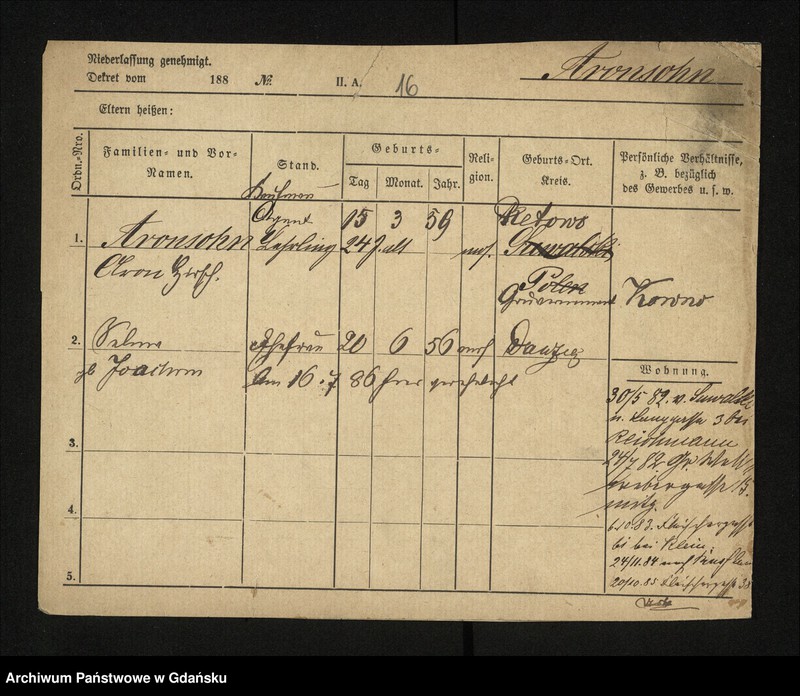 Niederlassung genehmigt.
Dekret vom 188 No. II. A. 16
Aronsohn
Eltern heißen:
Ordn.-Nro.
Familien- und Vor-Namen.
Stand.
Geburts-
Tag Monat. Jahr.
Religion.
Geburts-Ort.
Kreis.
Persönliche Verhältnisse,
z. B. bezüglich
des Gewerbes u. s. w.
Kaufmann
Agent 15 3 59 Retowo
1. Aronsohn Lehrling 24 J. alt mos. Suwalski
Aron Hirsch. Polen
Gouvernement Kowno
2. Selma Ehefrau 20 6 56 mos Danzig
gb Joachim Am 16.7 86 hier
Wohnung.
30/5 82. v. Suwalski
n. Langgasse 3 bei
Reichmann
24/7 82 Gr.
3.
4.
6.10.83. Fleischergasse
bei Klein.
24/11.84 nach
20/10.85 Fleischergasse
5.
Archiwum Państwowe w Gdańsku